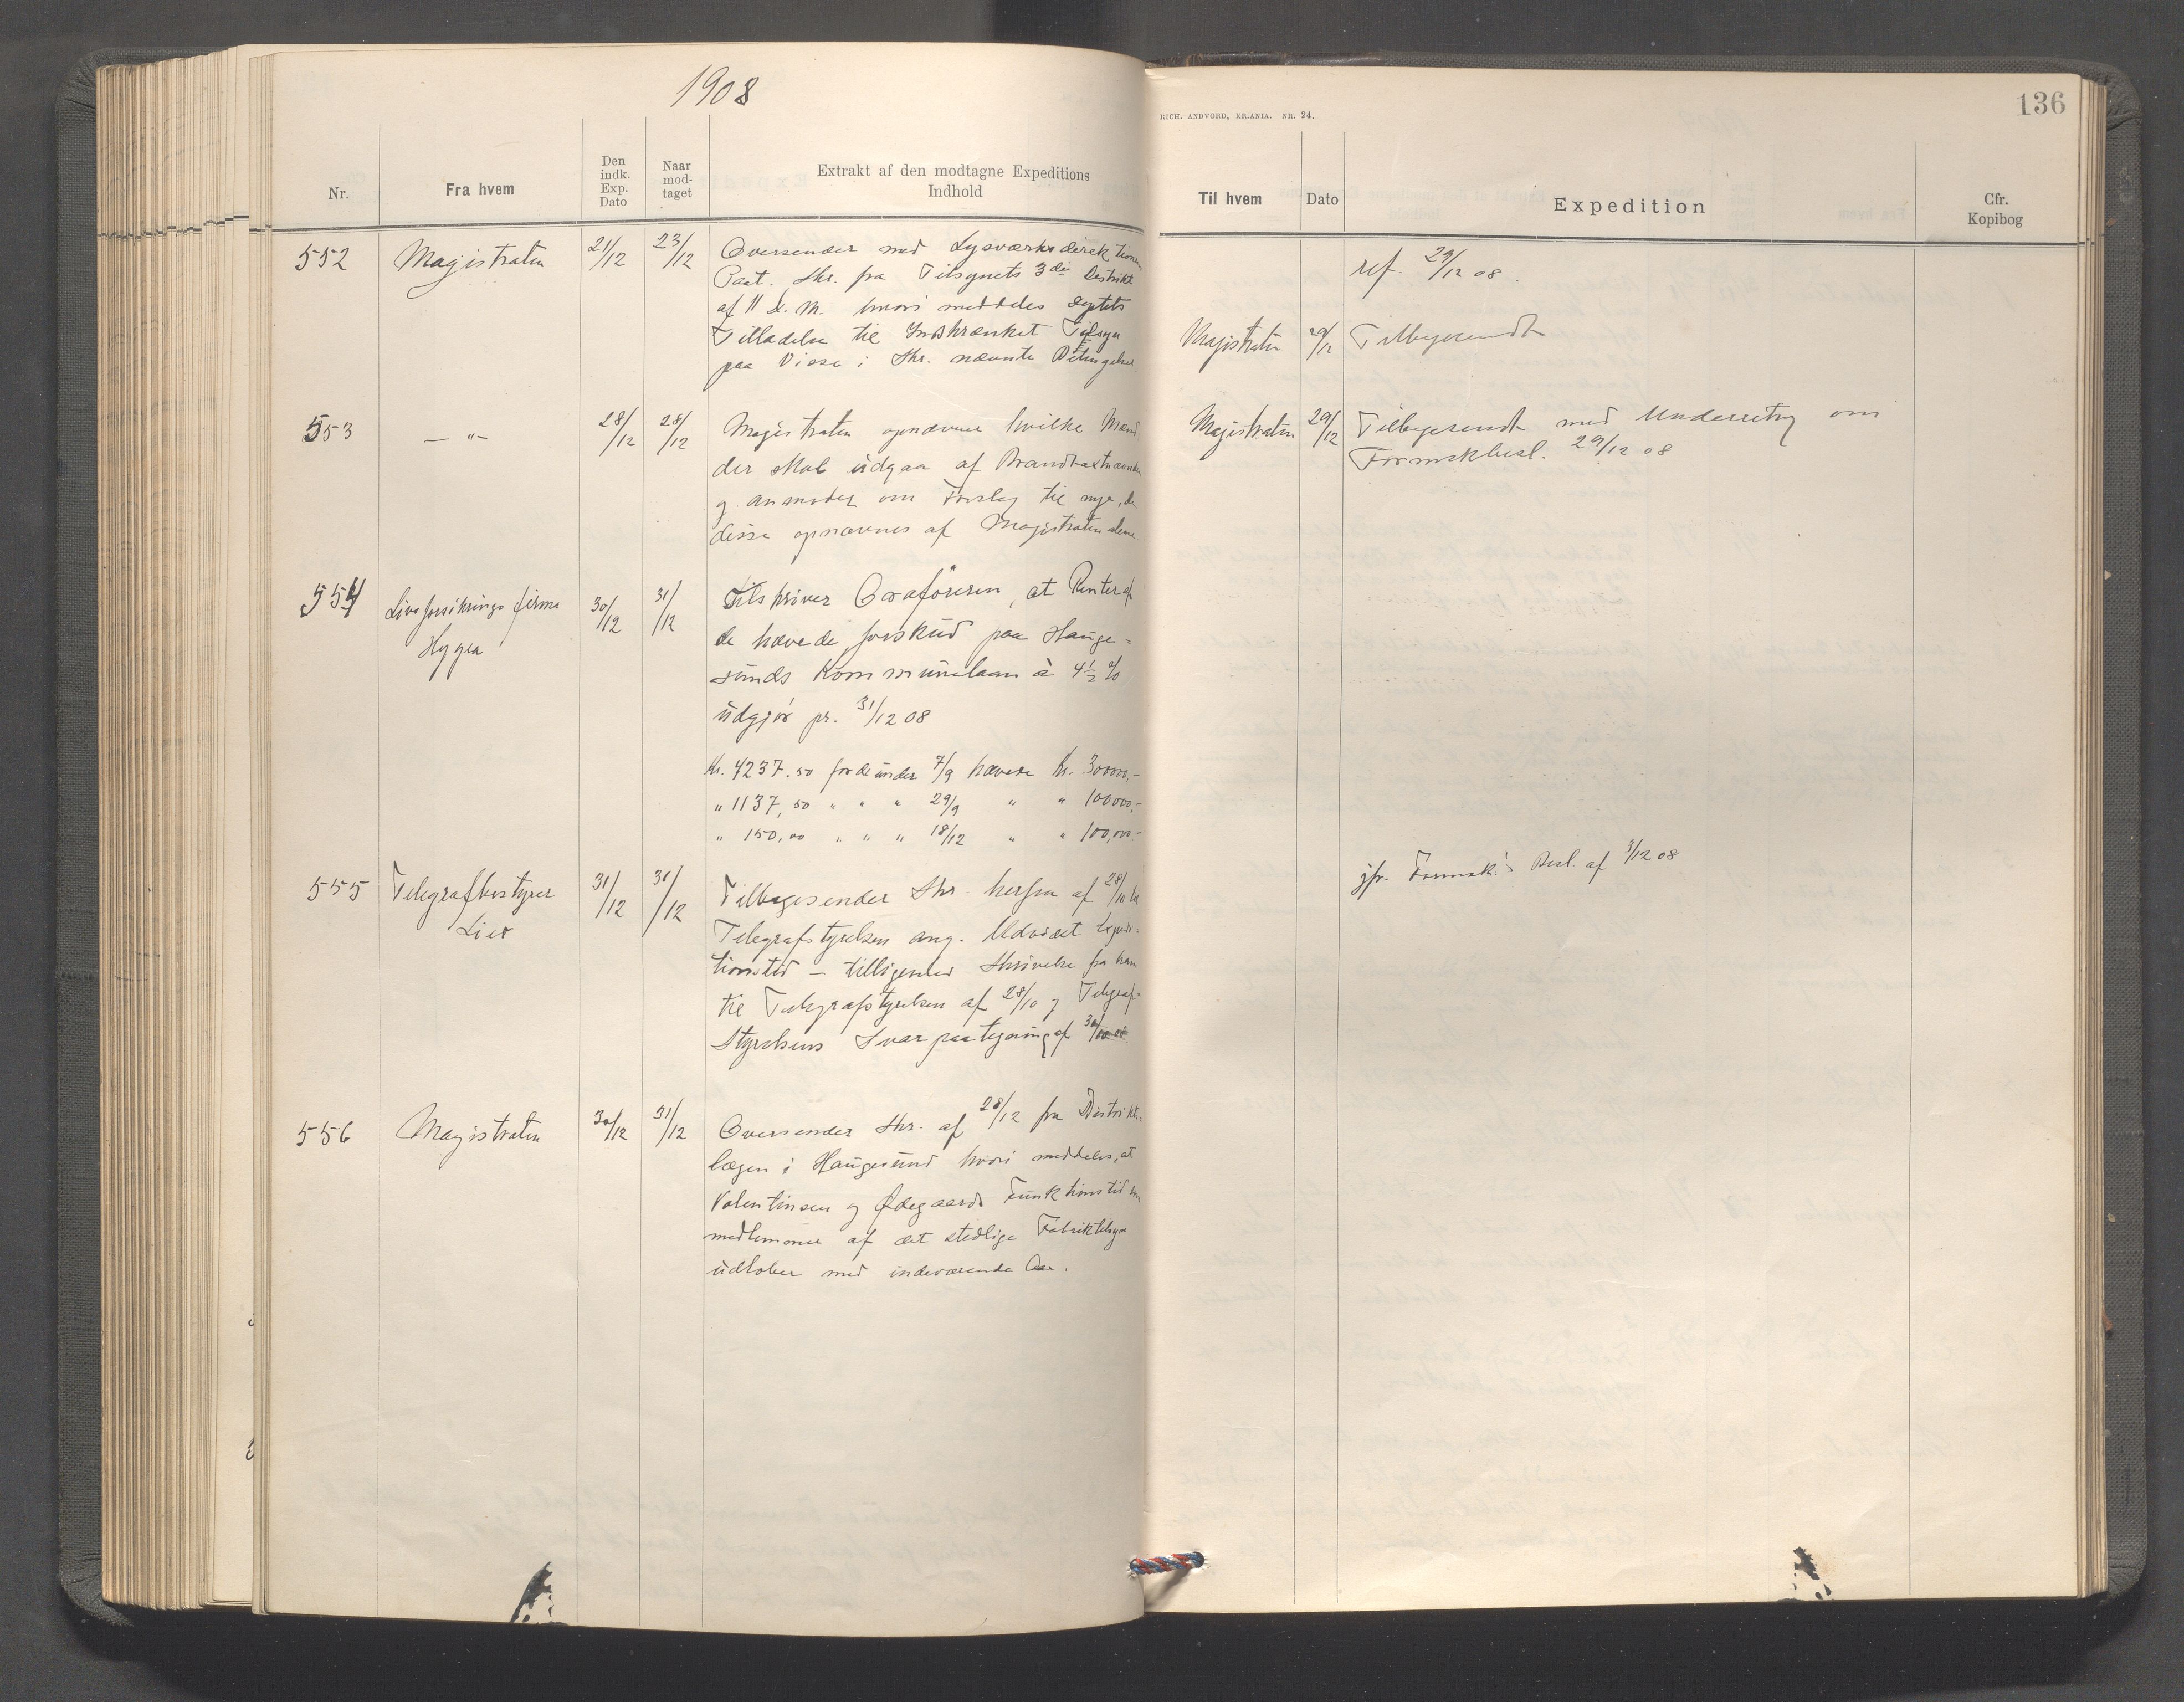 1908
Nr.
Fra hvem
Den indk. Exp. Dato
Naar modtaget
Extrakt af den modtagne Expeditions Indhold
552
Magistraten
21/12
23/12
Oversender med Lysværksdirektionens
Paat. Skr. fra Tilsynets 3die Distrikt
af 11 d. M. hvori meddeles Deptets
Tilladelse til Indskrænket Tilsyn
paa Visse i Skr. nævnte Betingelser
553
— " —
28/12
28/12
Magistraten opnævner hvilke Mænd
der skal udgaa af Brandtaxtnævnden
og anmoder om Forslag til nye, da
disse opnævnes af Magistraten alene
554
Livsforsikrings firma
Hygea
30/12
31/12
Tilskriver Ordføreren, at Renter af
de hævede forskud paa Hauge-
sunds Kommunelaan à 4½ %
udgjør pr. 31/12 08
Kr. 4237.50 for de under 7/9 hævede Kr. 300000,-
" 1137,50 " " " 29/9 " " 100000,-
" 150,00 " " " 18/12 " " 100,000-
555
Telegrafbestyrer
Lier
31/12
31/12
Tilbagesender Skr. herfra af 28/10 til
Telegrafstyrelsen ang. Udvidet Expedi-
tionstid — tilligemed Skrivelse fra ham
til Telegrafstyrelsen af 28/10 og Telegraf-
Styrelsens Svarpaategning af
556
Magistraten
30/12
31/12
Oversender Skr. af 28/12 fra Distrikts-
lægen i Haugesund hvori meddeles, at
Valentinsen og Ødegaards Funktionstid som
medlemmer af det stedlige Fabriktilsyn
udløber med indeværende Aar.
RICH. ANDVORD, KR.ANIA. NR. 24.
136
Til hvem
Dato
Expedition
Cfr. Kopibog
ref. 29/12 08.
Magistraten
29/12
Tilbagesendt
Magistraten
29/12
Tilbagesendt med Underretng om
Formskbesl. 29/12 08
jfr. Formsk.'s Besl. af 3/12 08